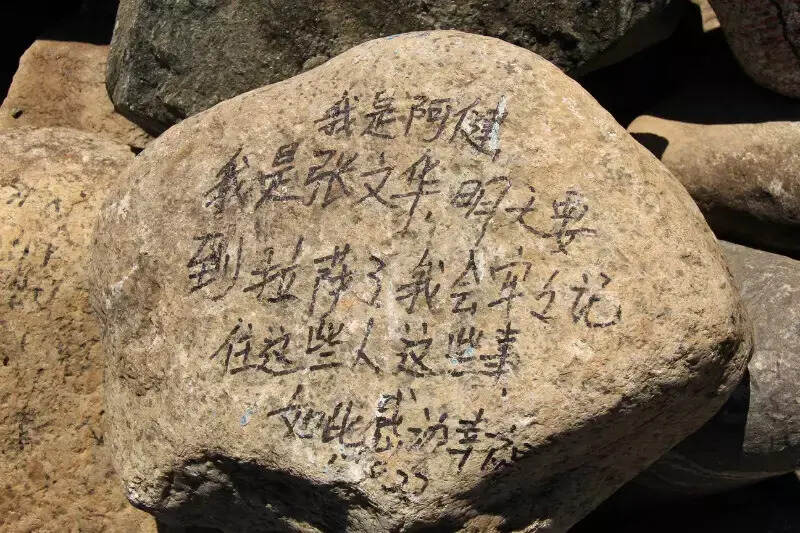 我是阿健
我是张文华,明天要
到拉萨了我会牢々记
住这些人这些事,
如此感动幸福